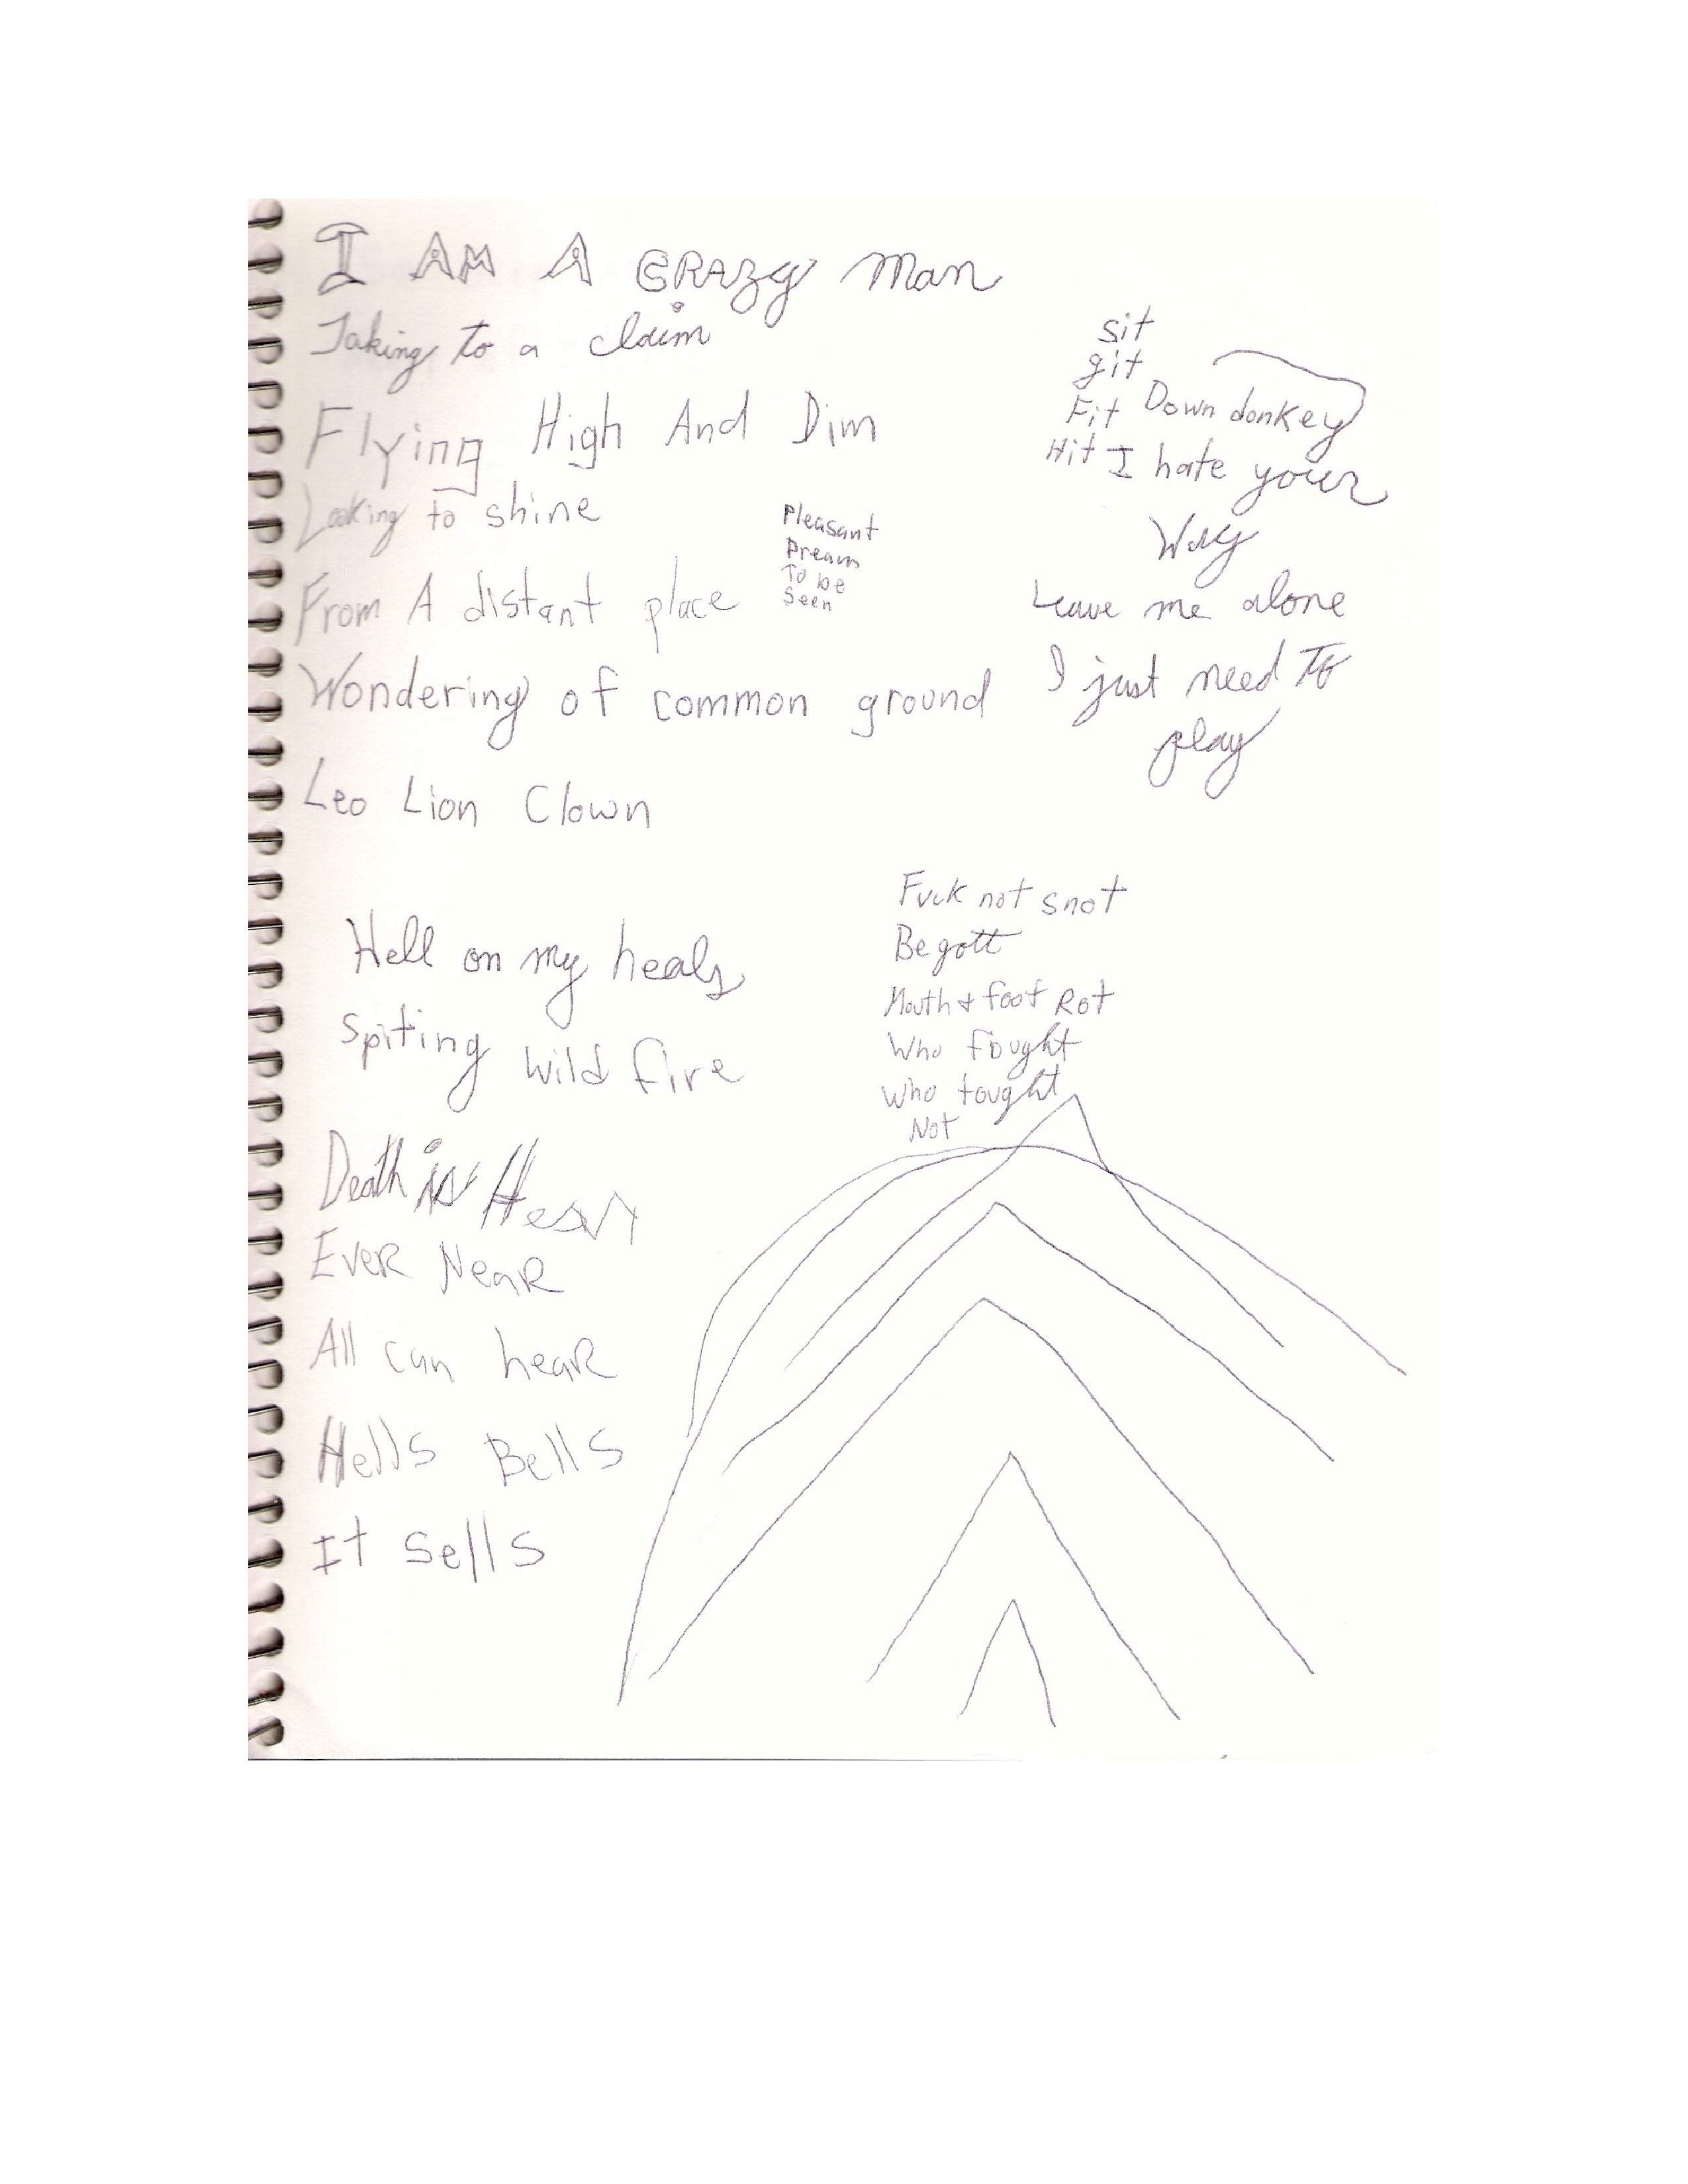 I AM A CRAZY Man
Taking to a claim
Flying High And Dim
Looking to shine
From A distant place
Wondering of common ground
Leo Lion Clown
Pleasant
Dream
To be
Seen
sit
git
Fit Down donkey
Hit I hate your
Way
Leave me alone
I just need To
play
Hell on my heals
Spiting wild fire
Death is
Ever Near
All can hear
Hells Bells
It Sells
Fuck not snot
Begott
Mouth & foot Rot
Who fought
Who tought
Not